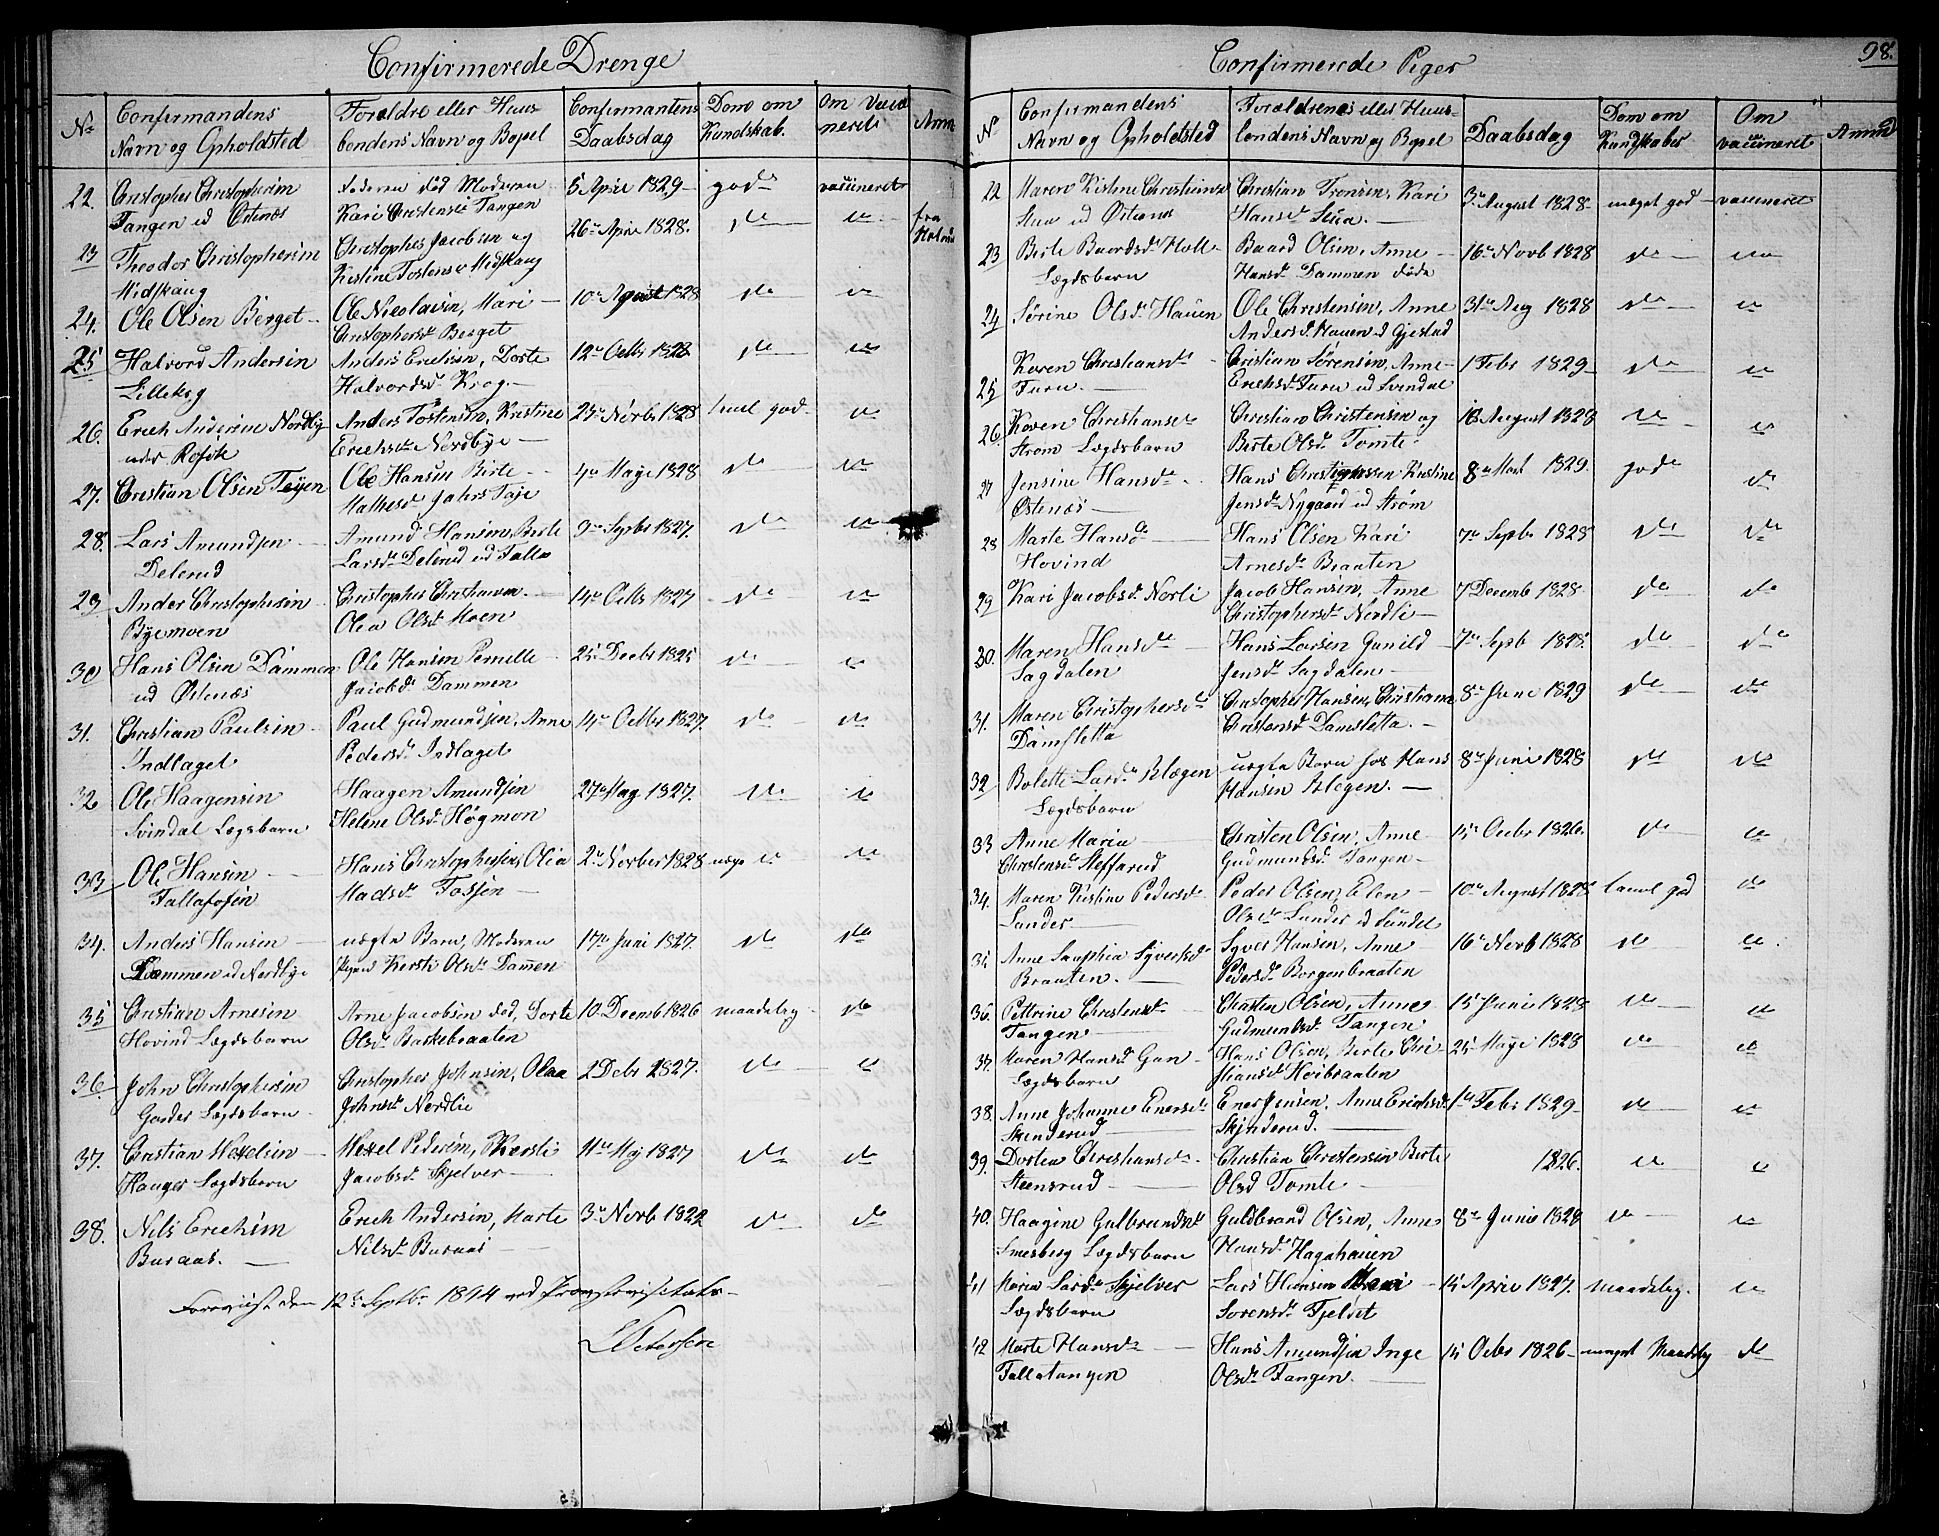 Confirmerede Drenge
No
Confirmandens
Navn og Opholdsted
Forældre eller Huus
bondens Navn og Bopel
Confirmantens
Daabsdag
Dom om
Kundskab.
Om Vacci
neret
Anm
22. Christopher Christophersen Tangen ud Østenæs
Faderen død Moderen Kari Christensd Tangen
5 April 1829 god vaccineret
23 Theodor Christophersen Midskaug
Christopher Jacobsen og Kistine Tostensd Midskaug
26 April 1828. do do fra
24. Ole Olsen Berget
Ole Nicolaisen, Mari Christophersd Berget
10 August 1828 do do
25 Halvord Andersen Lillekrg
Anders Erichsen, Dorte Halvordsd Krog.
12 Octbr 1828 do do
26. Erich Andersen Nordby under Rofsøe
Anders Tostensen, Kristine Erichsd Nordbye
23 Novbr 1828 god do
27. Christian Olsen Tøyen
Ole Hansen Birte
4 Maye 1828 do do
28. Lars Amundsen Delerud
Amund Hansen, Berte Larsd. Delerud ud Falla
9 Septbr 1827. do do
29 Anders Christophersen Byemoen
Christopher Christiansen Olea Olsd. Moen
14 Octbr 1827 do do
30 Hans Olsen Dammen ud Østenæs
Ole Hansen Pernille Jacobsd Dammen
25 Decbr 1825 do do
31. Christian Paulsen Indlaget
Paul Gudmundsen, Anne Pedersd. Indlaget
14 Octbr 1827. do do
32 Ole Haagensen Svindal Lægdsbarn
Haagen Amundsen Helene Olsd. Høgmon
27 May 1827. do do
33 Ole Hansen Fallafosen
Hans Christophersen, Olia Madsd. Fossen
2 Novber 1828 do do
34. Anders Hansen Dammen ud Nordbye
uægte Barn, Moderen Pigen Kersti Olsd. Dammen
17 Juni 1827. do do
35 Christian Arnesen Hovind Lægdsbarn
Arne Jacobsen død, Dorte Olsd. Baskebraaten
10. Decemb 1826 maadelig do
36 John Christophersen Garder Lægdsbarn
Christopher Johnsen, Olaa Johnsd Nordlie
2 Debr 1827. do do
37. Christian Mexelsen Hauger Lægdsbarn
Mexel Pedersen, Kersti Jacobsd. Skjelver
11 Maj 1827 do do
38. Nils Erichsen Buraas.
Erich Andersen, Marte Nilsd. Buraas
3 Novb 1822 do do
Foreviist den 12 Septbr 1844 ved Provstevisitats
Confirmerede Piger
98.
No
Confirmandens
Navn og Opholdsted
Forældrenes eller Huus
bondens Navn og Bopel
Daabsdag
Dom om
Kundskaber
Om
vaccineret
Anmd
22 Maren Kistine Christiansd Stua ud Østenæs
Christian Tronsen, Kari Hansd. Stua.
3 August 1828 meget god vaccineret
23 Berte Baardsd. Holt Lægdsbarn
Baard Olsen, Anne Hansd. Dammen døde
16 Novb 1828 do do
24 Sørine Olsd. Hauen
Ole Christensen, Anne Andersd. Hauen ud Gjestad
31 Aug 1828 do do
25 Karen Christiansd Furu.
Christian Sørensen, Anne Erichsd. Furu ud Svendal
1 Febr 1829 do do
26 Karen Christiansd Strøm Lægdsbarn
Christian Christensen og Berte Olsd. Tomte
18 August 1828 do do
27 Jensine Hansd. Østenæs
Hans Christiansen Kristine Jensd. Nygaard ud Strøm
8 Mart 1829. god do
28 Marte Hansd Hovind
Hans Olsen Kari Arnesd. Braaten
7 Septbr 1828 do do
29 Kari Jacobsd. Norli
Jacob Hansen, Anne Christophersd. Nordli
7 Decemb 1828 do do
30. Maren Hansd Sagdalen
Hans Larsen Gunild Jensd. Sagdalen
7 Septb 1828. do do
31. Maren Christophersd Damsletta
Christopher Hansen, Christiane Christensd. Damsletta.
8 June 1829 do do
32 Bolette Larsd. Blegen Lægdsbarn
uægte Barn hos Hans Hansen Blegen.
8 Juni 1828 do do
33 Anne Maria Christensd. Steffarud
Christen Olsen, Anne Gudmundsd. Tangen
15 Octbr 1826. do do
34. Maren Kistine Pedersd. Sander
Peder Olsen, Elen Olsd. Sander ud Sundet
10 August 1828 god do
35 Anne Sauphia Syversd Braaten.
Syver Hansen, Anne Pedersd. Borgenbraaten
16 Novb 1828 do do.
36. Pettrine Christensd Tangen
Christen Olsen, Anne Gudmundsd. Tangen
15 Juni 1828 do do
37. Karen Hansd. Gan Lægdsbarn
Hans Olsen, Berte Chri stiansd. Høibraaten
25 Maye 1828 do do
38. Anne Johanne Enersd. Skinderud
Ener Jensen, Anne Erichsd. Skjnderud.
1 Febr 1829 do do
39. Dortea Christiansd. Steensrud
Christian Christensen Berte Olsd Tomte
1826. do do
40. Haagine Gulbrandsd. Smesberg Lægdsbarn
Guldbrand Olsen, Anne Hansd. Hagahauen
8 Junii 1828 do do
41 Maria Larsd. Skjelver Lægdsbarn
Lars Hansen Mari Sørensd. Fjeldet
15 April 1827. maadelig. do
42 Marte Hansd. Fallatangen
Hans Amundsen Inge Olsd. Tangen.
15 Octbr 1826 meget Maadelig do